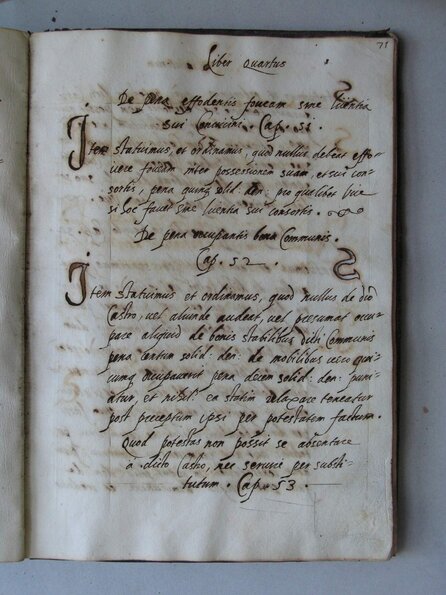 71
Liber Quartus
De pena effodentis foveam sine licentia
sui Communis. Cap. 51.
Item statuimus, et ordinamus, quod nullus debeat effo-
vere foveam inter possessionem suam, et sui con-
sortis, pena quinq solid: den: pro qualibet vice
si hoc facit sine licentia sui consortis.
De pena occupantis bona Communis.
Cap. 52.
Item statuimus et ordinamus, quod nullus de dicto
Castro, vel aliunde audeat, vel presumat occu-
pare aliquid de bonis stabilibus dicti Communis
pena centum solid: den: de mobilibus vero quic-
cumq occupaverit pena decem solid: den: puni-
atur, et ea statim relaxare teneatur
post preceptum ipsi per potestatem factum.
Quod potestas non possit se absentare
a dicto Castro, nec servire per substi-
tutum. Cap. 53.